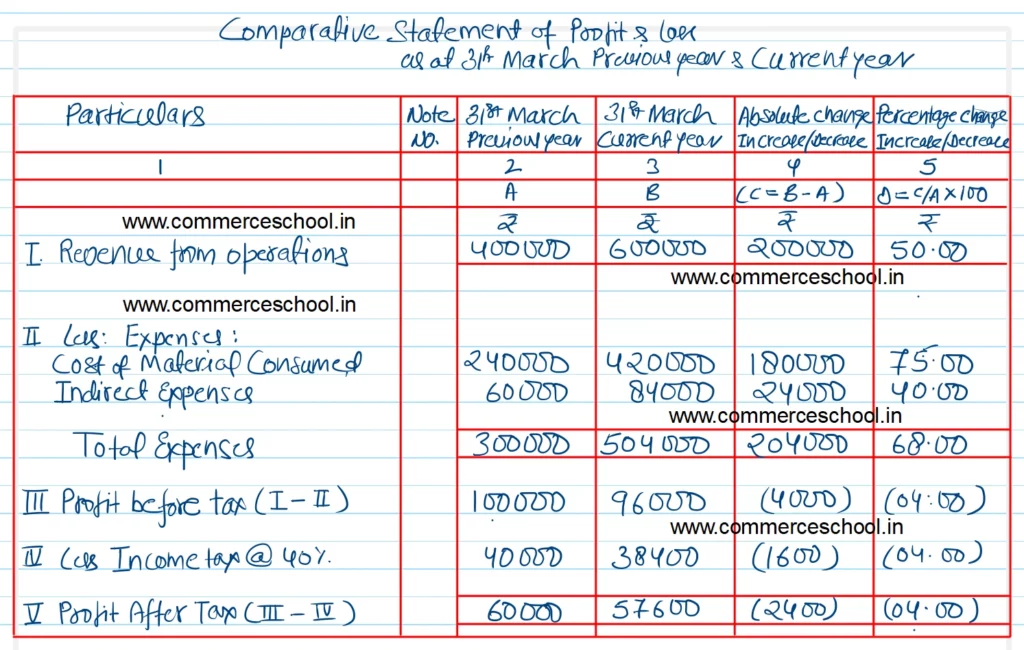 Comparative Statement of Profit & loss
as at 31st March Previous year & Current year
Particulars Note No. 31st March Previous year 31st March Current year Absolute change Increase/Decrease Percentage change Increase/Decrease
1 2 3 4 5
A B (C=B-A) D=C/A×100
www.commerceschool.in ₹ ₹ ₹ ₹
I. Revenue from operations 400000 600000 200000 50.00
www.commerceschool.in
www.commerceschool.in
II Less: Expenses:
Cost of Material Consumed 240000 420000 180000 75.00
Indirect Expenses 60000 84000 24000 40.00
www.commerceschool.in
Total Expenses 300000 504000 204000 68.00
III Profit before tax (I-II) 100000 96000 (4000) (04.00)
www.commerceschool.in
IV Less Income tax @ 40% 40000 38400 (1600) (04.00)
V Profit After Tax (III-IV) 60000 57600 (2400) (04.00)